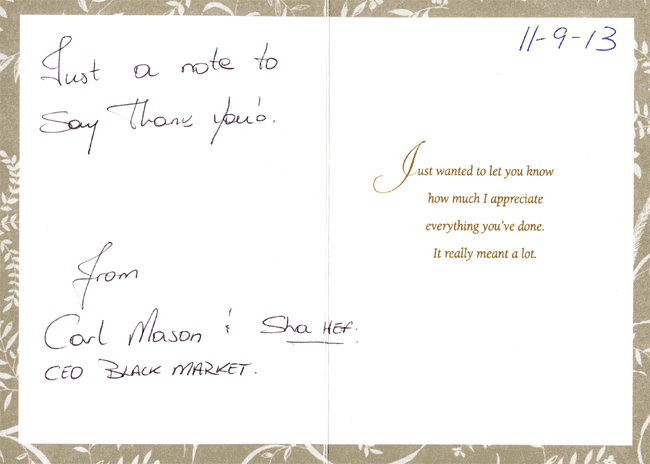 Just a note to
Say Thank You's.
From
Carl Mason & Sha HEF.
CEO BLACK MARKET.
11-9-13
Just wanted to let you know
how much I appreciate
everything you've done.
It really meant a lot.